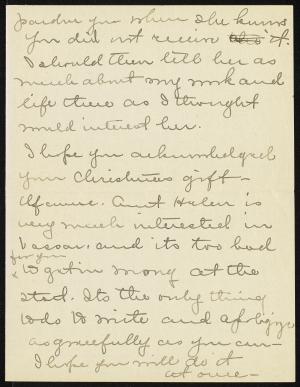 pardon you when she knows
you did not receive it.
I should then tell her as
much about my work and
life there as I thought
would interest her.
I hope you acknowledged
your Christmas gift —
Of course. Aunt Helen is
very much interested in
Vassar, and its too bad
for you
to get in wrong at the
start. Its the only thing
to do to write and apologize
as gracefully as you can —
I hope you will do it
at once —